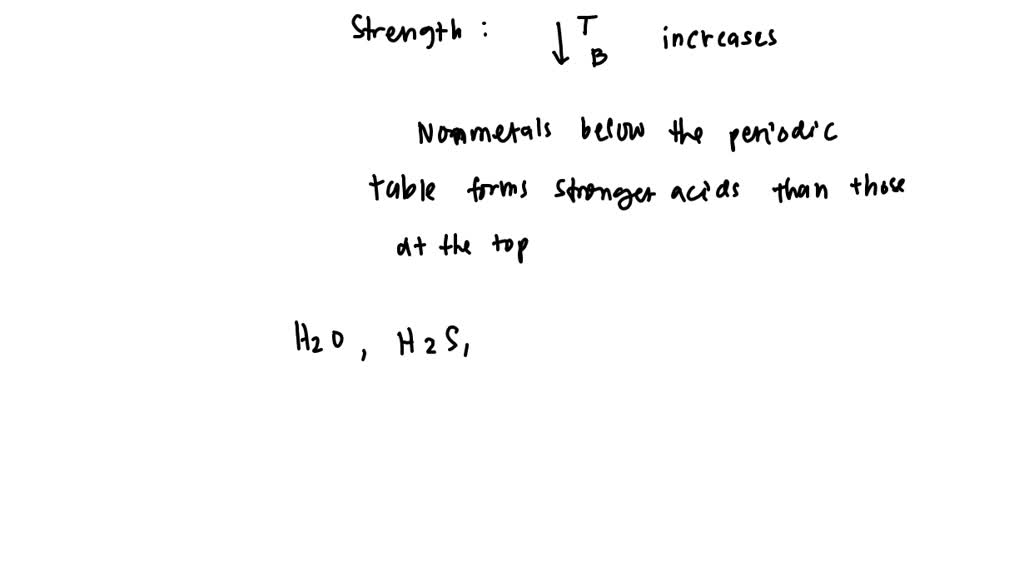 Strength : ↓ T B increases
Nonmetals below the periodic
table forms stronger acids than those
at the top
H₂O, H₂S,